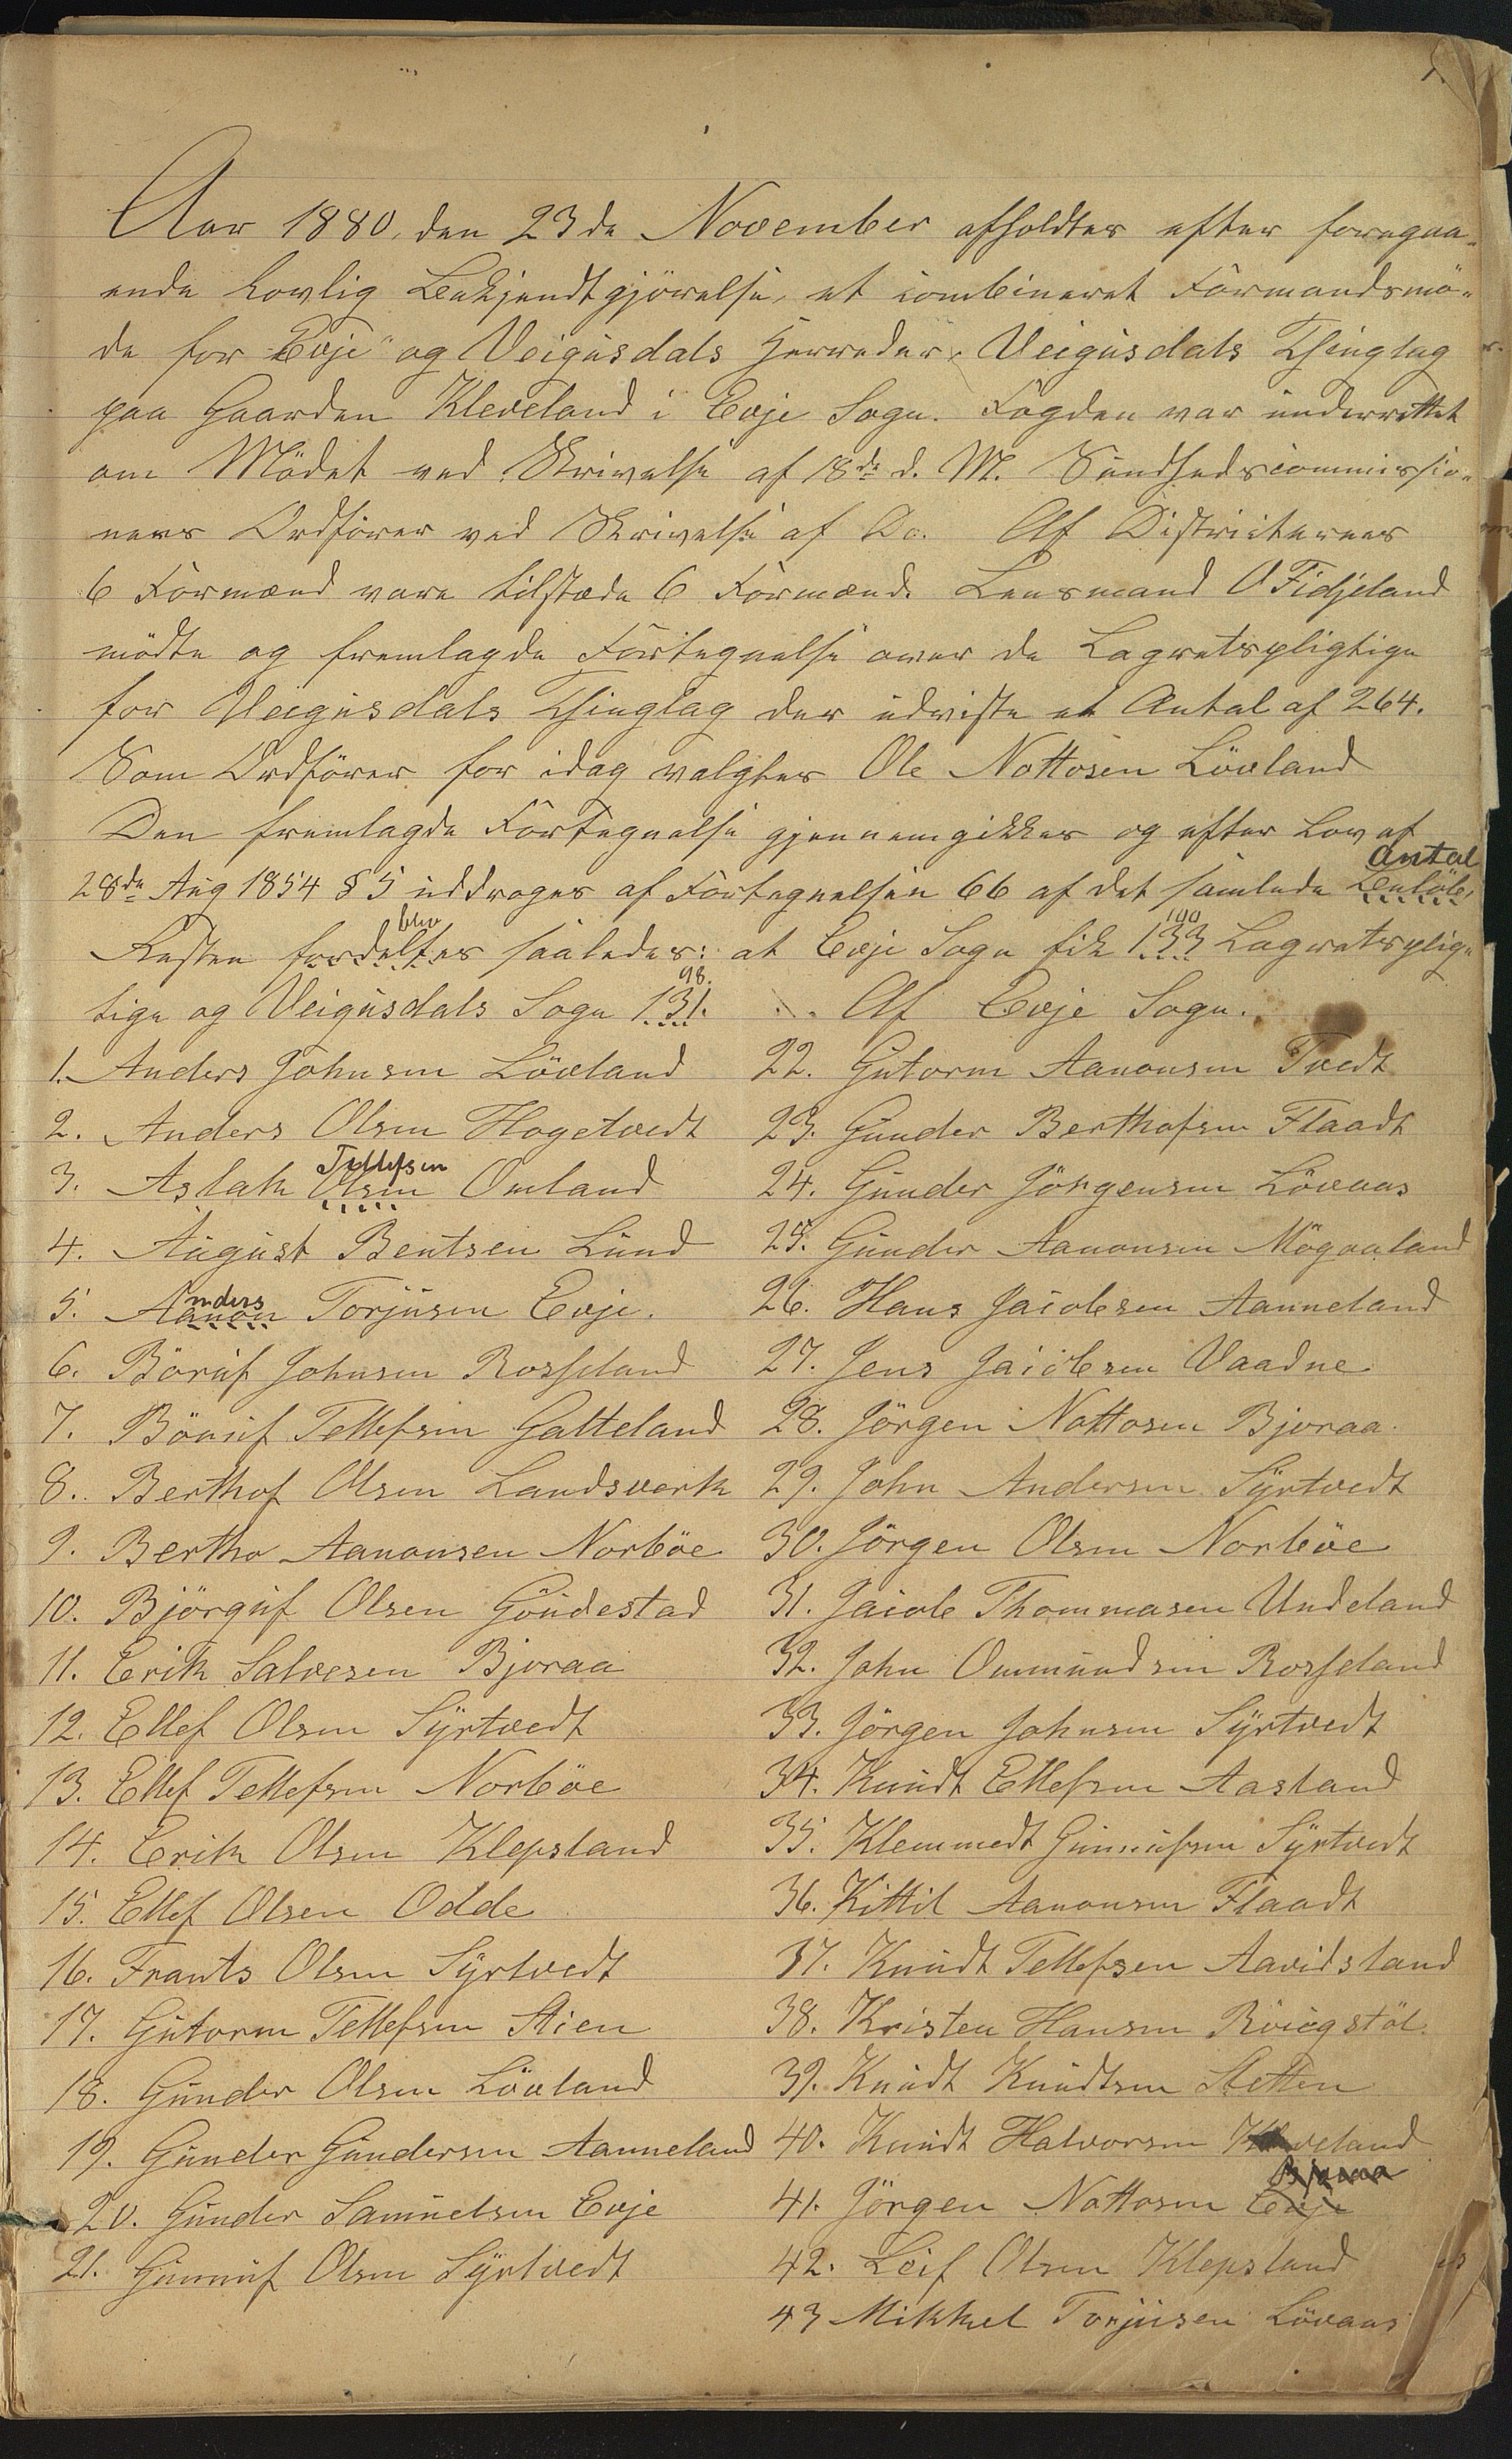 1.
Aar 1880, den 23de November afholdtes efter foregaa-
ende lovlig Bekjendtgjörelse, et combineret Formandsmö-
de for Evje og Veigusdals Herreder, Veigusdals Thinglag
paa Gaarden Kleveland i Evje Sogn. Fogden var underrettet
om Mödet ved Skrivelse af 18de d. M. Sundhedscommissio-
nens Ordförer ved Skrivelse af Do. Af Districternes
6 Formænd vare tilstæde 6 Formænd. Lensmand O Fidjeland
mödte og fremlagde Fortegnelse over de Lagretspligtige
for Veigusdals Thinglag der udviste et Antal af 264.
Som Ordförer for idag valgtes Ole Nottosen Lövland
Den fremlagde Fortegnelse gjennemgikkes og efter Lov af
28de Aug 1854 § 5 uddroges af Fortegnelsen 66 af det samlede Belöb, Antal
Resten fordeltes blev saaledes: at Evje Sogn fik 133 100 Lagretsplig-
tige og Veigusdals Sogn 131. 98. Af Evje Sogn.
1. Anders Johnsen Lövland
2. Anders Olsen Hogetvedt
3. Aslak Olsen Tellefsen Omland
4. August Bentsen Lund
5. Aanon nders Torjusen Evje.
6. Böruf Johnsen Rosseland
7. Bönuf Tellefsen Galteland
8. Berthof Olsen Landsverk
9. Bertho Aanonsen Norböe
10. Björguf Olsen Göudestad
11. Erik Salvesen Bjoraa
12. Ellef Olsen Syrtvedt
13. Ellef Tellefsen Norböe
14. Erik Olsen Klepsland
15. Ellef Olsen Odde
16. Frants Olsen Syrtvedt
17. Gutorm Tellefsen Stien
18. Gunder Olsen Lövland
19. Gunder Gundersen Aanneland
20. Gunder Samuelsen Evje
21. Gunnuf Olsen Syrtvedt
22. Gutorm Aanonsen Tvedt
23. Gunder Berthofsen Flaadt
24. Gunder Jörgensen Lövaas
25. Gunder Aanonsen Mögaaland
26. Hans Jacobsen Aanneland
27. Jens Jacobsen Vaadne
28. Jörgen Nottosen Bjoraa.
29. John Andersen Syrtvedt
30. Jörgen Olsen Norböe
31. Jacob Thommasen Undeland
32. John Ommundsen Rosseland
33. Jörgen Johnsen Syrtvedt
34. Knudt Ellefsen Aasland
35. Klemmedt Gunnufsen Syrtvedt
36. Kittil Aanonsen Flaadt
37. Knudt Tellefsen Aavidsland
38. Kristen Hansen
39. Knudt Knudtsen Stetten
40. Knudt Halvorsen Kleveland
41. Jörgen Nottosen Evje Bjoraa
42. Leif Olsen Klepsland
43 Mikkel Torjusen Lövaas